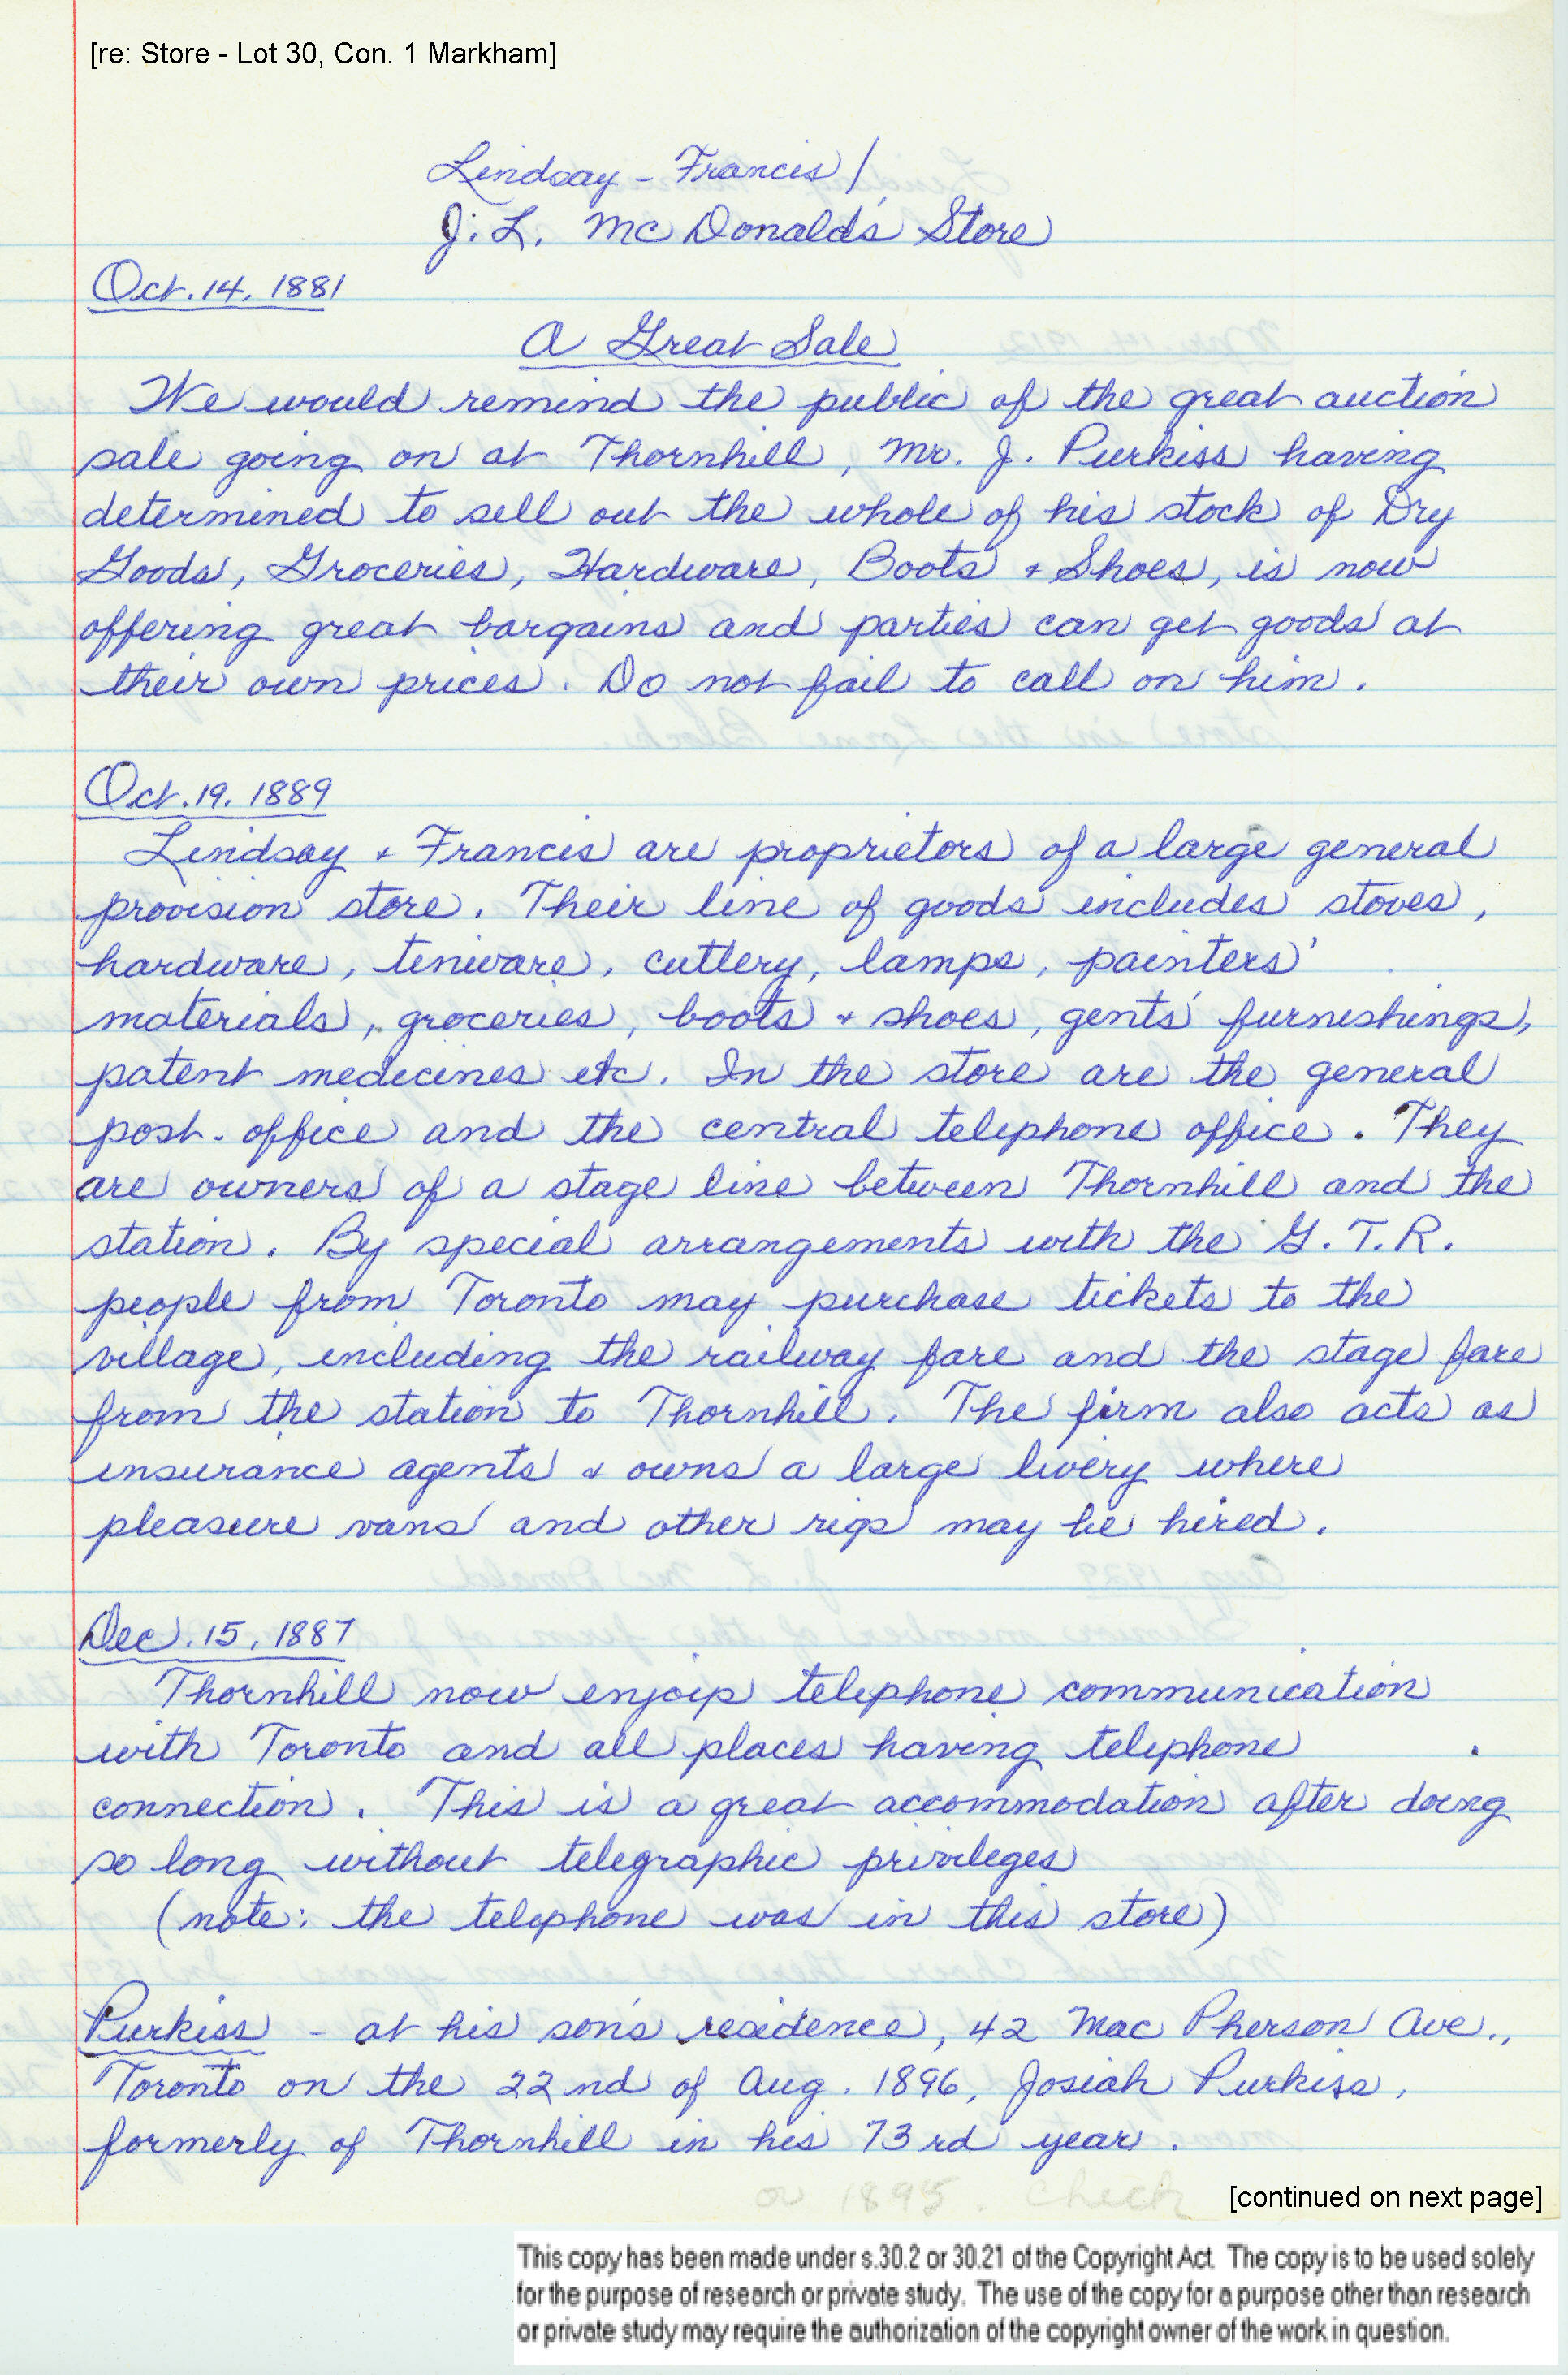 [re: Store - Lot 30, Con. 1 Markham]
Lindsay - Francis /
J. L. McDonald's Store
Oct. 14, 1881
A Great Sale
We would remind the public of the great auction
sale going on at Thornhill, Mr. J. Purkiss having
determined to sell out the whole of his stock of Dry
Goods, Groceries, Hardware, Boots + Shoes, is now
offering great bargains and parties can get goods at
their own prices. Do not fail to call on him.
Oct. 19. 1889
Lindsay + Francis are proprietors of a large general
provision store. Their line of goods includes stoves,
hardware, tinware, cutlery, lamps, painters'
materials, groceries, boots + shoes, gents' furnishings,
patent medicines etc. In the store are the general
post-office and the central telephone office. They
are owners of a stage line between Thornhill and the
station. By special arrangements with the G.T.R.
people from Toronto may purchase tickets to the
village, including the railway fare and the stage fare
from the station to Thornhill. The firm also acts as
insurance agents + owns a large livery where
pleasure vans and other rigs may be hired.
Dec. 15, 1887
Thornhill now enjoys telephone communication
with Toronto and all places having telephone
connection. This is a great accommodation after doing
so long without telegraphic privileges
(note: the telephone was in this store)
Purkiss - at his son's residence, 42 MacPherson Ave.,
Toronto on the 22nd of Aug. 1896, Josiah Purkiss,
formerly of Thornhill in his 73rd year.
or 1895. check
[continued on next page]
This copy has been made under s.30.2 or 30.21 of the Copyright Act. The copy is to be used solely
for the purpose of research or private study. The use of the copy for a purpose other than research
or private study may require the authorization of the copyright owner of the work in question.